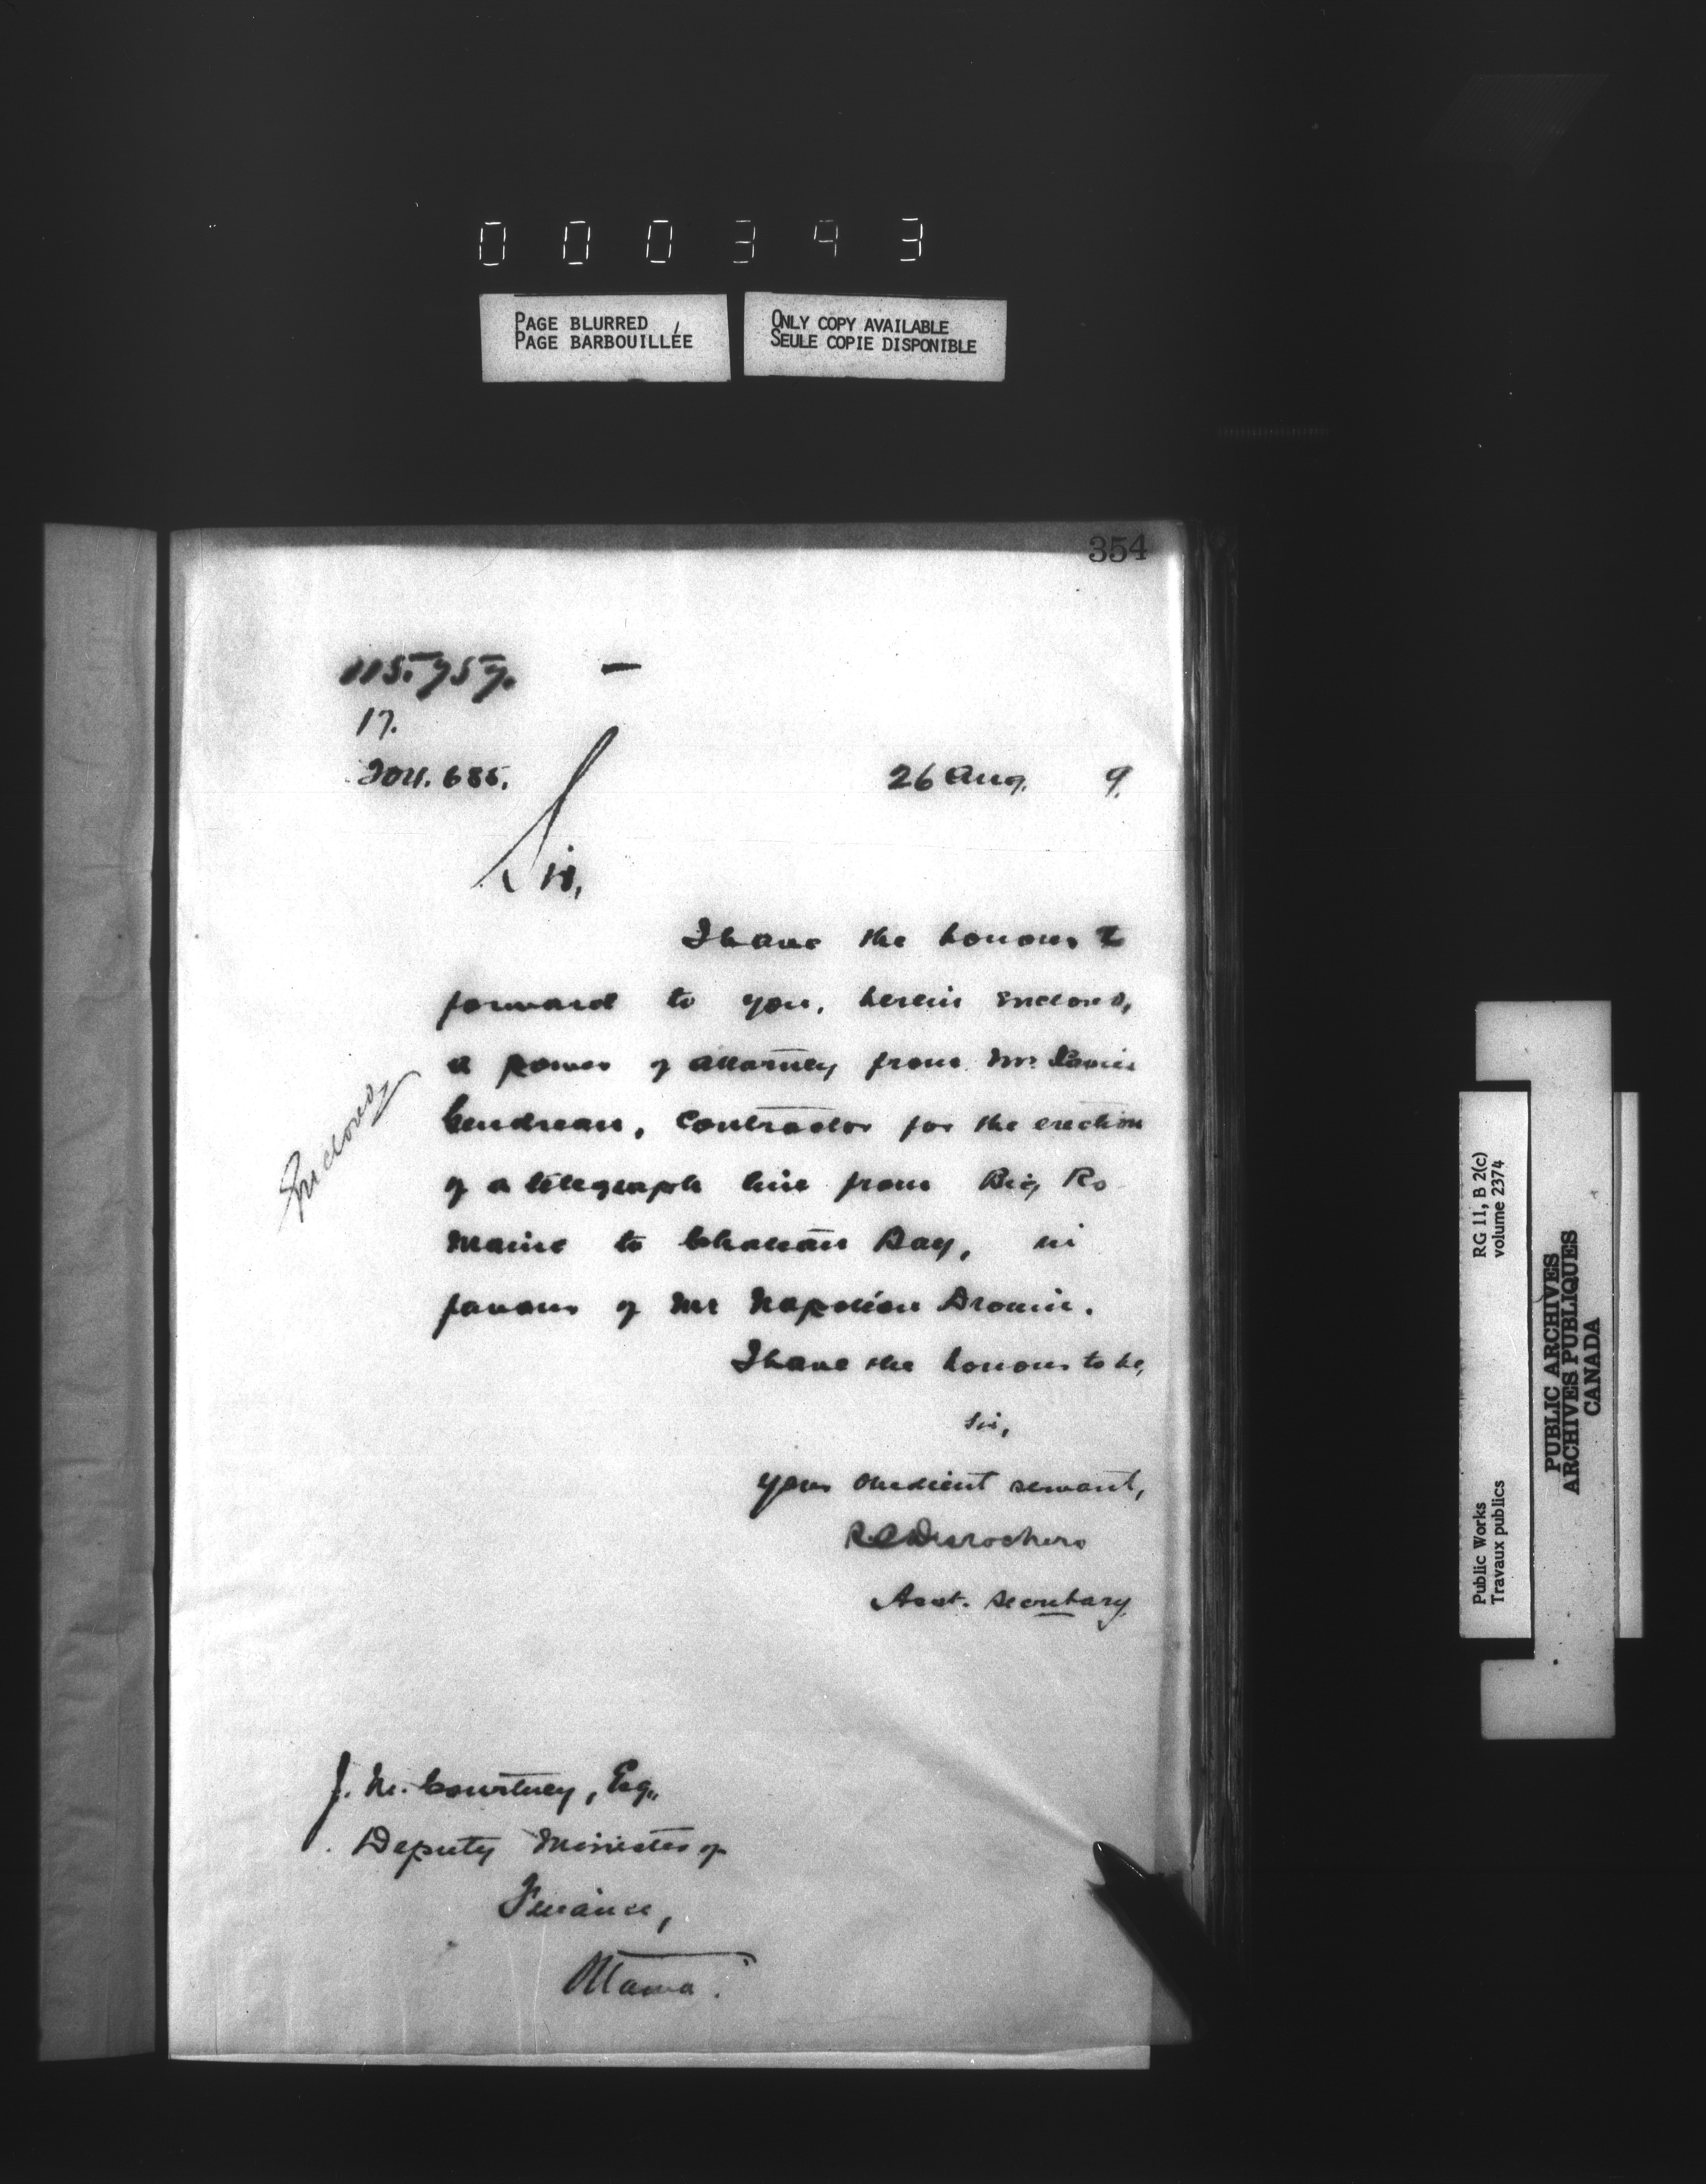 000393
PAGE BLURRED
PAGE BARBOUILLÉE
ONLY COPY AVAILABLE
SEULE COPIE DISPONIBLE
354
115.757.
17.
204.685.
26 Aug. 9.
Sir,
I have the honour to
forward to you, herein enclosed,
a power of attorney from Mr. Louis
Gendreau, Contractor for the erection
of a telegraph line from Big Ro
Maine to Chateau Bay, in
favour of Mr Napoléon Drouin.
Enclosed
I have the honour to be,
Sir,
Your obedient servant,
R.C Desrochers
Asst. Secretary
J. M. Courtney, Esq.,
Deputy Minister of
Finance,
Ottawa.
RG 11, B 2(c)
volume 2374
Public Works
Travaux publics
PUBLIC ARCHIVES
ARCHIVES PUBLIQUES
CANADA